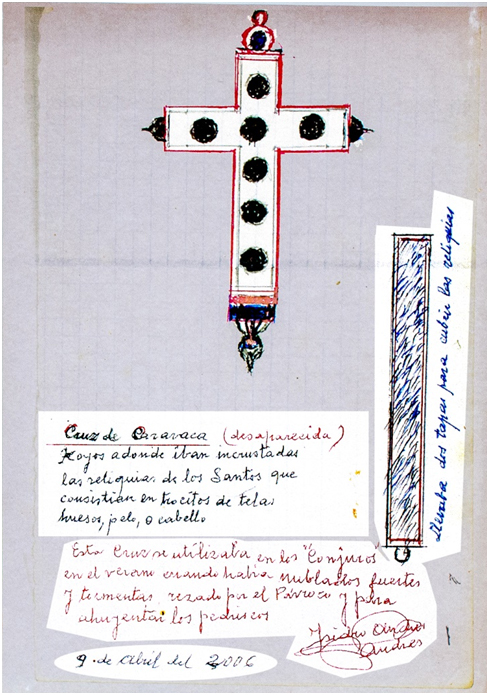 Cruz de Caravaca (desaparecida)
Hoyos adonde iban incrustadas
las reliquias de los Santos que
consistían en trocitos de telas
huesos, pelo, o cabello
Llevaba dos tapas para cubrir las reliquias
Esta Cruz se utilizaba en los "Conjuros"
en el verano cuando había nublados fuertes
y tormentas, rezado por el Párroco y para
ahuyentar los pedriscos
Isidro
Andrés
9 de abril del 2006